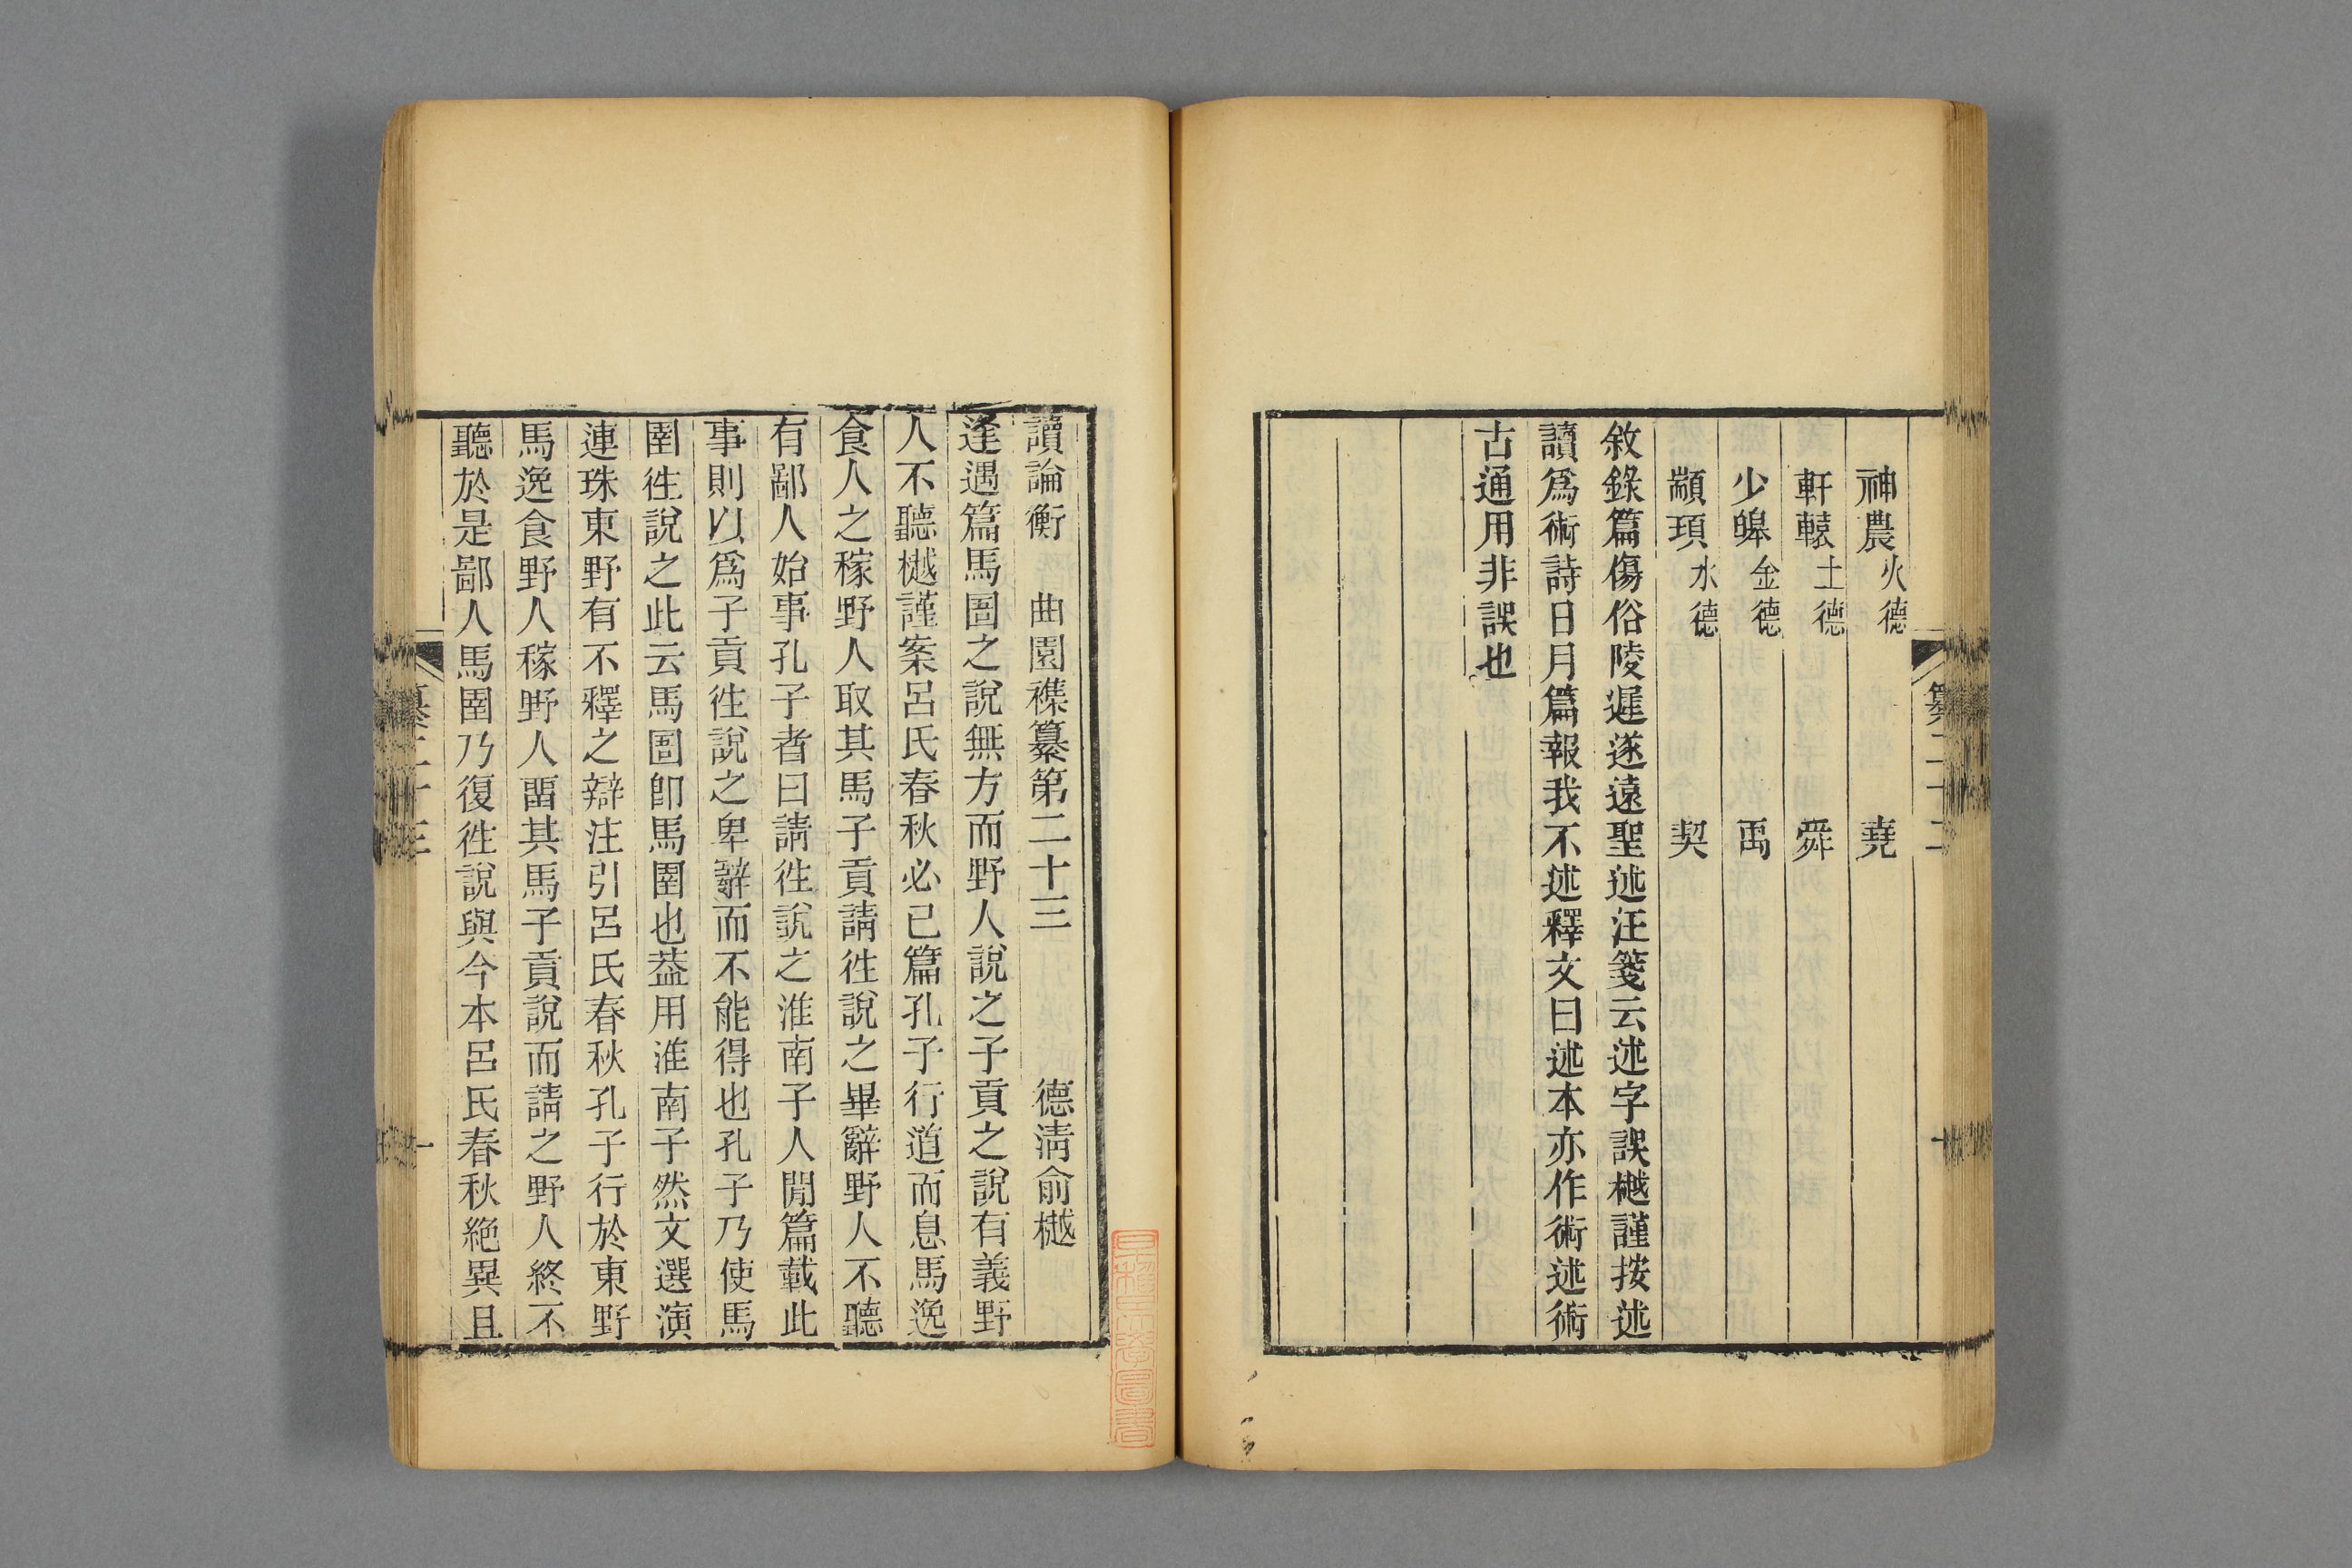 神農火德　堯
軒轅土德　舜
少皞金德　禹
顓頊水德　契
敘錄篇傷俗陵遲遂遠聖述汪箋云述字誤樾謹按述
讀爲術詩日月篇報我不述釋文曰述本亦作術述術
古通用非誤也
讀論衡　曲園襍纂第二十三　德淸俞樾
逢遇篇馬圄之說無方而野人說之子貢之說有義野
人不聽樾謹案呂氏春秋必己篇孔子行道而息馬逸
食人之稼野人取其馬子貢請往說之畢辭野人不聽
有鄙人始事孔子者曰請往說之淮南子人閒篇載此
事則以爲子貢往說之卑辭而不能得也孔子乃使馬
圉往說之此云馬圄卽馬圉也葢用淮南子然文選演
連珠東野有不釋之辯注引呂氏春秋孔子行於東野
馬逸食野人稼野人畱其馬子貢說而請之野人終不
聽於是鄙人馬圉乃復往說與今本呂氏春秋絶異且